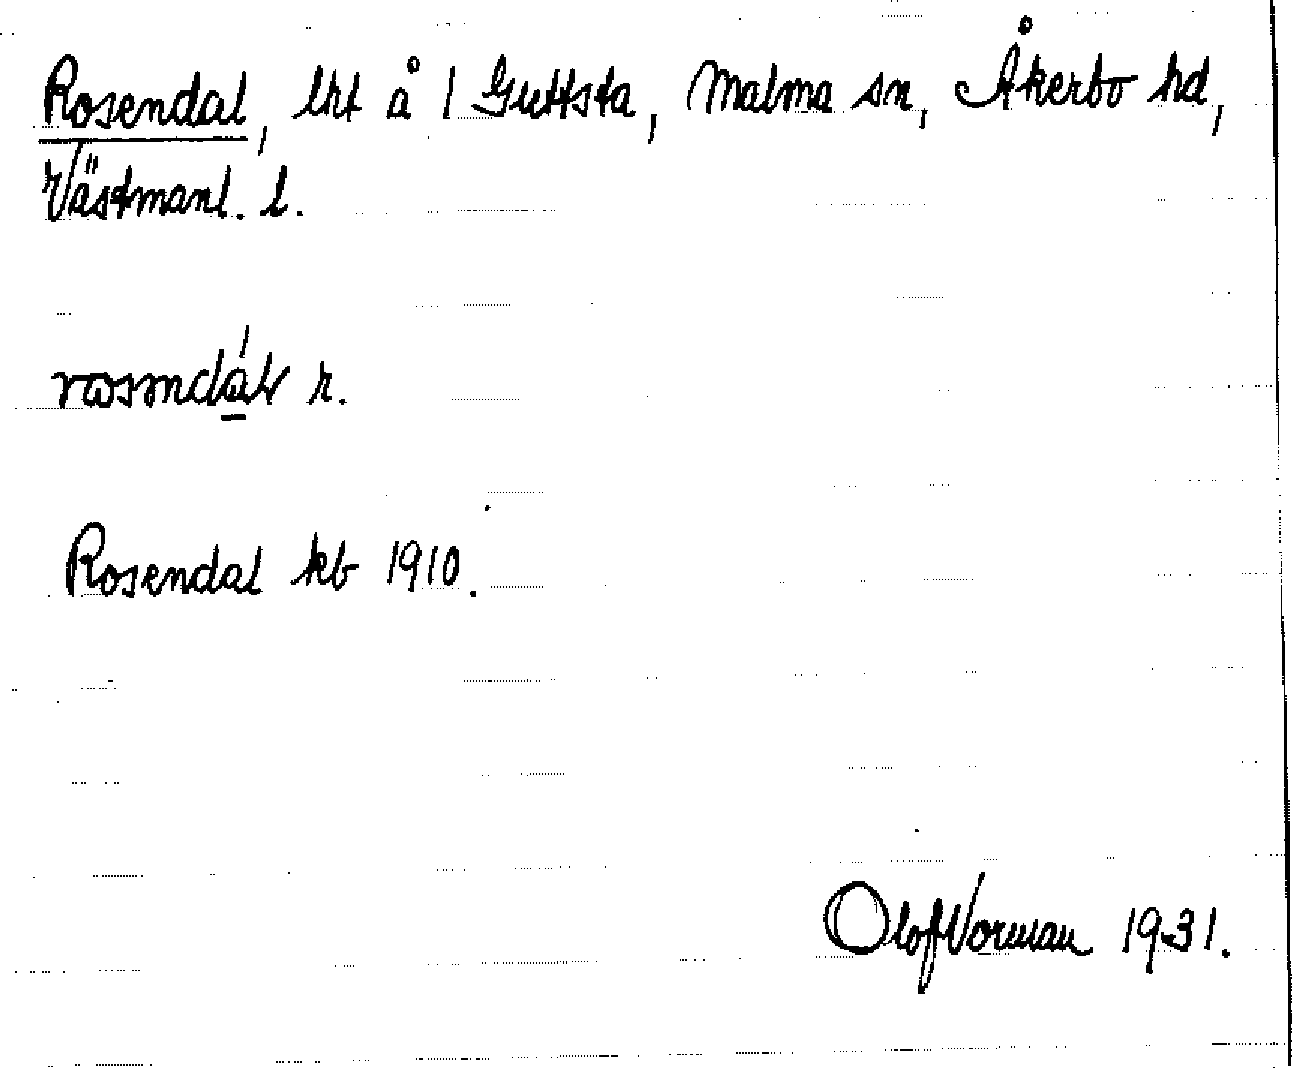 Rosendal, lht å 1 Guttsta, Malma sn, Åkerbo hd,
Västmanl. l.
r.
Rosendal kb 1910.
Olof Vorman 1931.